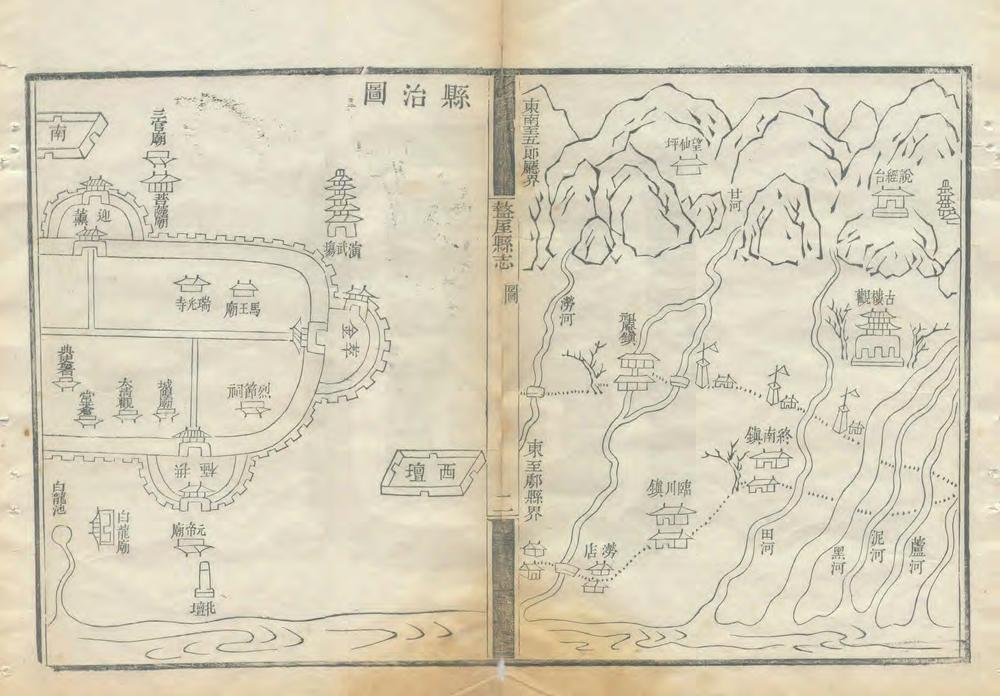 東南至五郎廳界
望仙坪
說經台
甘河
澇河
古樓觀
祖庵鎮
終南鎮
臨川鎮
東至鄠縣界
澇店
田河
黑河
泥河
蘆河
盩厔縣志
圖
二
縣治圖
南
三官廟
菩薩廟
迎薰
演武場
瑞光寺
馬王廟
金莘
典史署
城隍廟
太清觀
烈節祠
拱極
西壇
白龍池
白龍廟
元帝廟
北壇